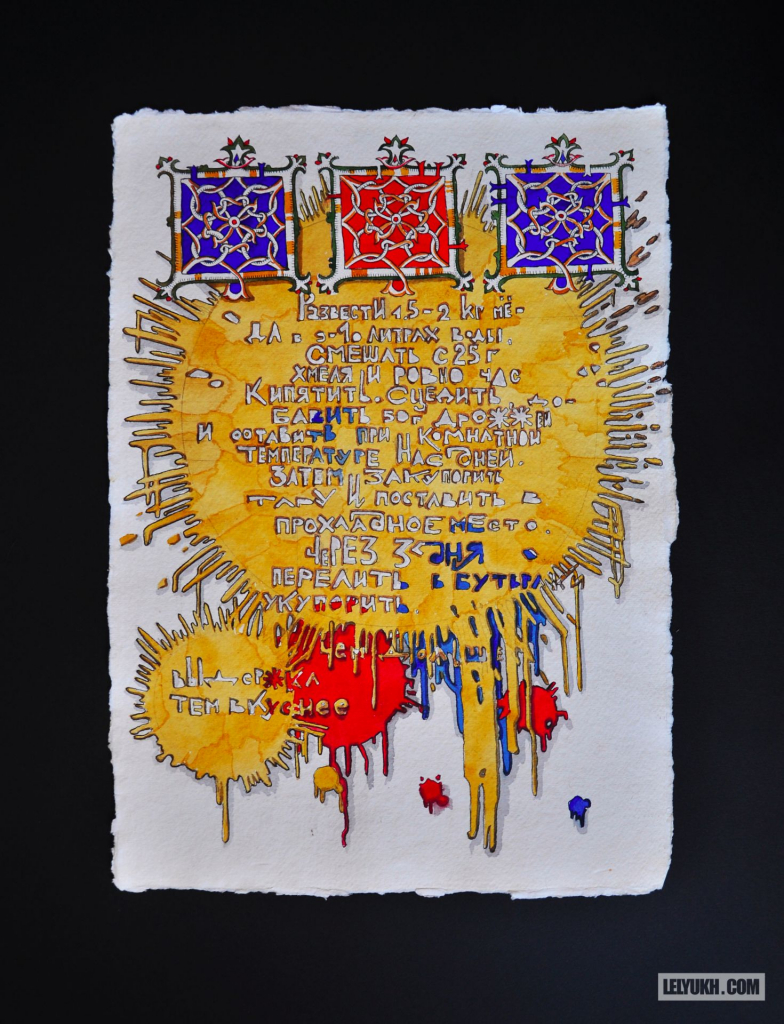 Развести 1,5-2 кг мё-
да в 9-10 литрах воды,
смешать с 25 г
хмеля и ровно час
кипятить. Сцедить, до-
бавить 50г дрожжей
и оставить при комнатной
температуре на 5 дней.
Затем закупорить
тару и поставить в
прохладное место.
Через 3 дня
перелить в бутыли
укупорить.
Чем дольше
выдержка
тем вкуснее
LELYUKH.COM